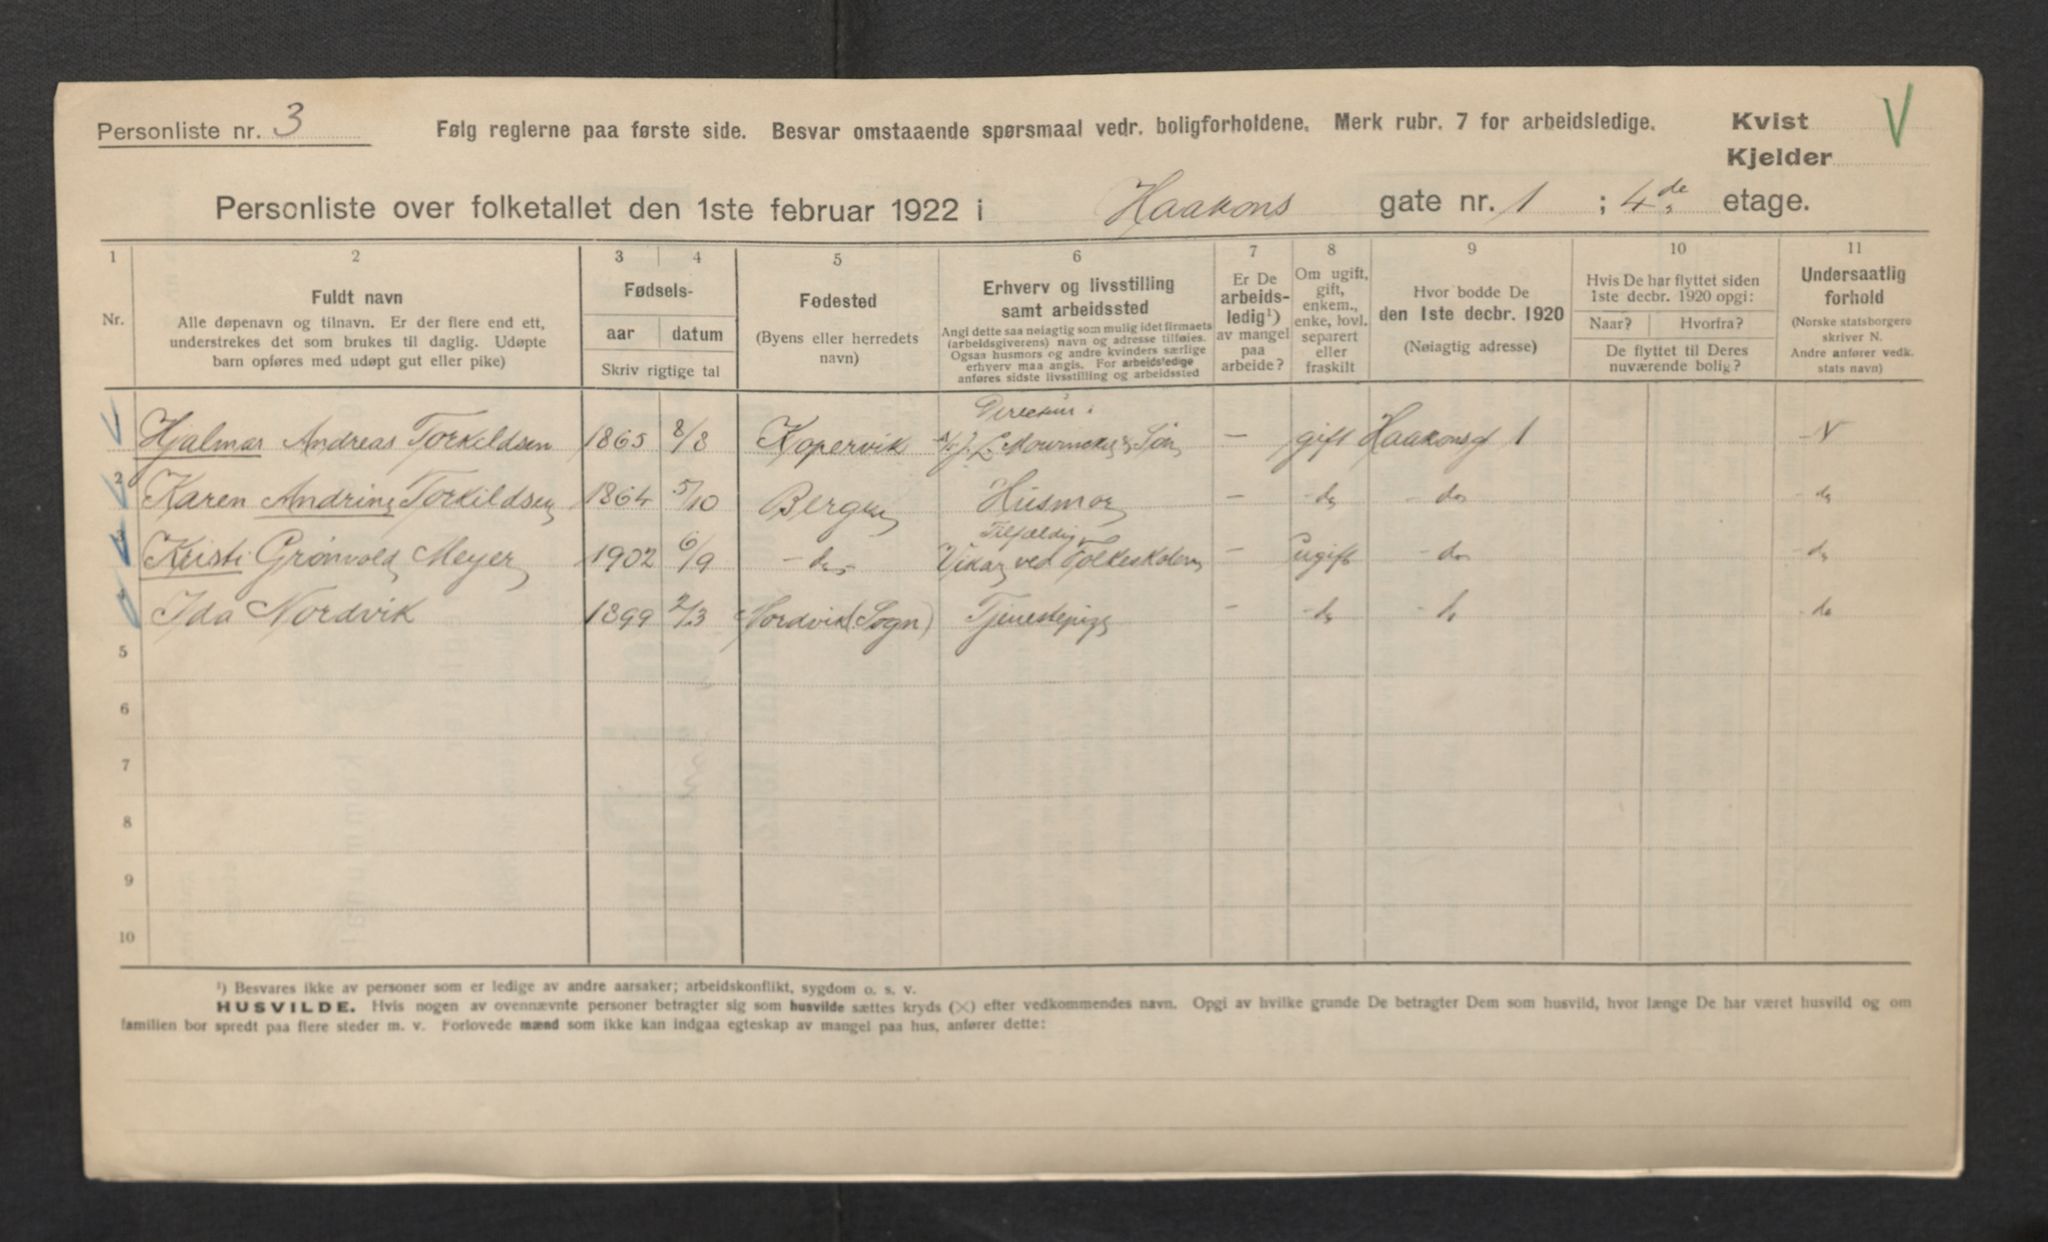 Personliste nr. 3
Følg reglerne paa første side. Besvar omstaaende spørsmaal vedr. boligforholdene. Merk rubr. 7 for arbeidsledige.
Kvist
Kjelder
V
Personliste over folketallet den 1ste februar 1922 i Haakons gate nr. 1 ; 4de etage.
1 2 3 4 5 6 7 8 9 10 11
Nr.
Fuldt navn
Alle døpenavn og tilnavn. Er der flere end ett,
understrekes det som brukes til daglig. Udøpte
barn opføres med udøpt gut eller pike)
Fødsels-
aar datum
Skriv rigtige tal
Fødested
(Byens eller herredets
navn)
Erhverv og livsstilling
samt arbeidssted
Angi dette saa nøiagtig som mulig idet firmaets
(arbeidsgiverens) navn og adresse tilføies.
Ogsaa husmors og andre kvinders særlige
erhverv maa angis. For arbeidsledige
anføres sidste livsstilling og arbeidssted
Er De
arbeids-
ledig¹)
av mangel
paa
arbeide?
Om ugift,
gift,
enkem.,
enke, lovl.
separert
eller
fraskilt
Hvor bodde De
den 1ste decbr. 1920
(Nøiagtig adresse)
Hvis De har flyttet siden
1ste decbr. 1920 opgi:
Naar? Hvorfra?
De flyttet til Deres
nuværende bolig?
Undersaatlig
forhold
(Norske statsborgere
skriver N.
Andre anfører vedk.
stats navn)
1 Hjalmar Andreas Torkildsen 1865 8/8 Kopervik Direktør i Søn — gift Haakonsgt 1 N
2 Karen Andrine Torkildsen 1864 5/10 Bergen Husmor — do - do - do
3 Kristi Grønvold Meyer 1902 6/9 - do - Tilfældig Vikar ved Folkeskolen — ugift - do - do
4 Ida Nordvik 1899 2/3 Nordvik (Sogn) Tjenestepige — - do - do - do
5
6
7
8
9
10
¹) Besvares ikke av personer som er ledige av andre aarsaker; arbeidskonflikt, sygdom o. s. v.
HUSVILDE. Hvis nogen av ovennævnte personer betragter sig som husvilde sættes kryds (×) efter vedkommendes navn. Opgi av hvilke grunde De betragter Dem som husvild, hvor længe De har været husvild og om
familien bor spredt paa flere steder m. v. Forlovede mænd som ikke kan indgaa egteskap av mangel paa hus, anfører dette: